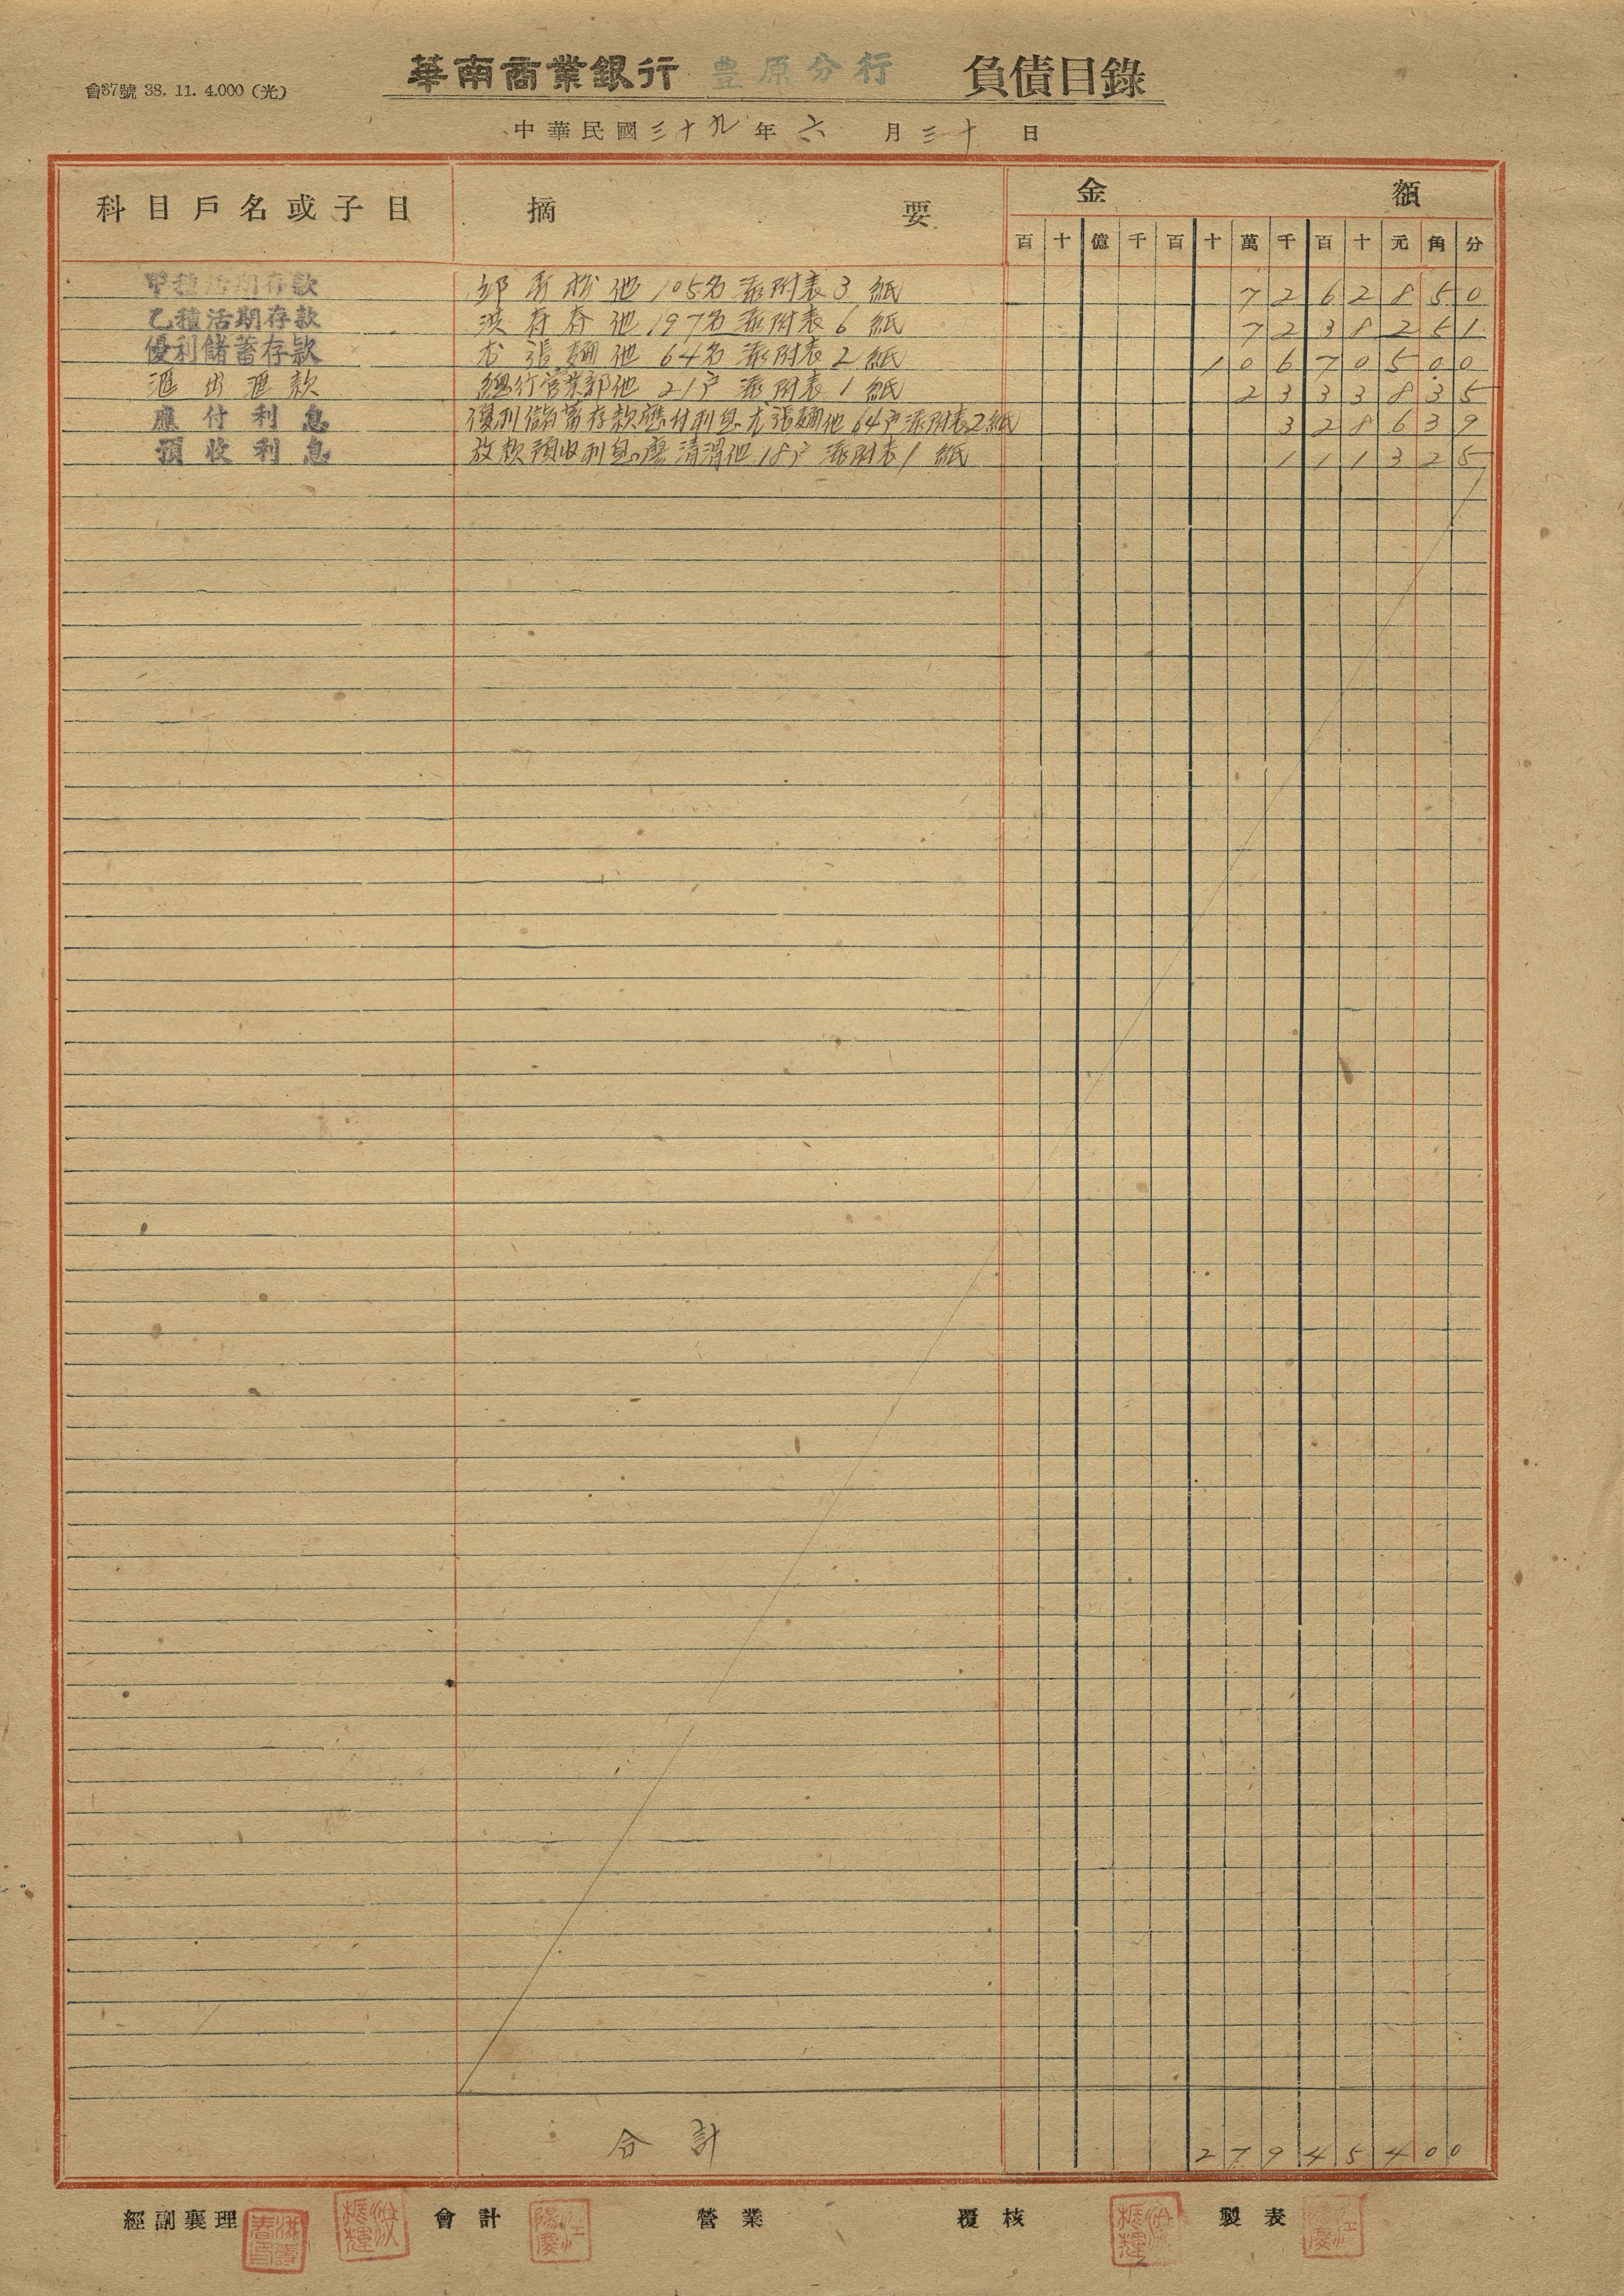 會87號 38. 11. 4.000 (光)
華南商業銀行 豊原分行 負債目錄
中華民國三十九年六月三十日
科目戶名或子目 摘要 金額
百十億千百十萬千百十元角分
甲種活期存款 邱 他 105名 添附表 3 紙 7262850
乙種活期存款 洪 春 他 197名 添附表 6 紙 7238251
優利儲蓄存款 尤 張 他 64名 添附表 2 紙 10670500
滙出滙款 總行營業部他 21户 添附表 1 紙 2333835
應付利息 優利儲蓄存款應付利息 尤張 他 64户添附表2紙 328639
預收利息 放款預收利息 廖清渭他 18户 添附表 1 紙 111325
合計 27945400
經副襄理 會計 營業 覆核 製表